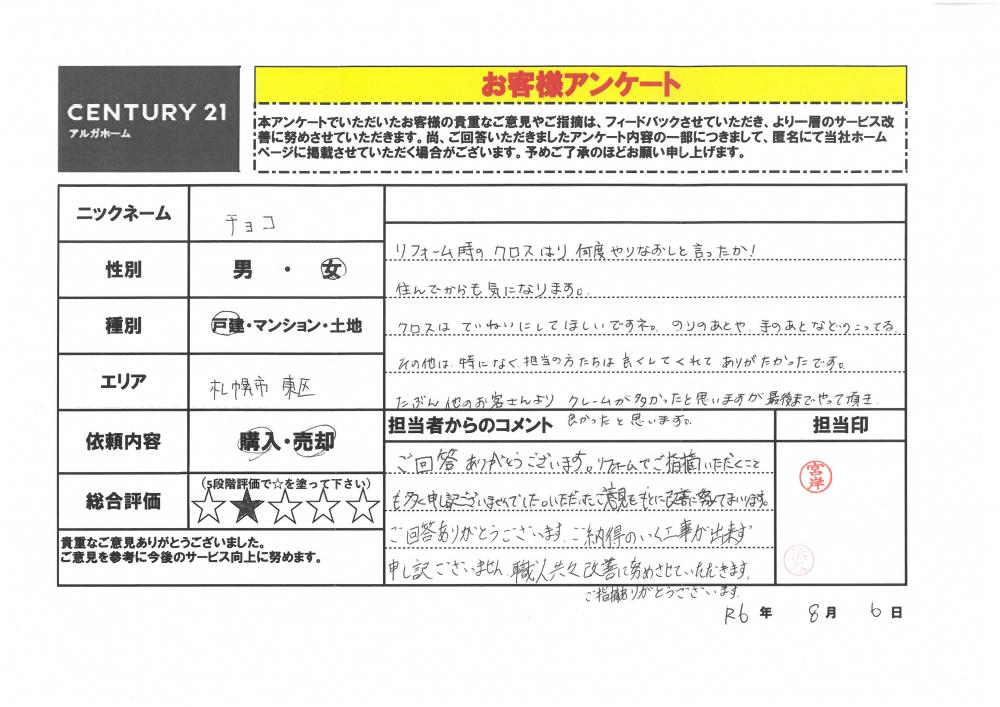 CENTURY 21
アルガホーム
お客様アンケート
本アンケートでいただいたお客様の貴重なご意見やご指摘は、フィードバックさせていただき、より一層のサービス改
善に努めさせていただきます。尚、ご回答いただきましたアンケート内容の一部につきまして、匿名にて当社ホーム
ページに掲載させていただく場合がございます。予めご了承のほどお願い申し上げます。
ニックネーム
チョコ
性別
男 ・ 女
種別
戸建・マンション・土地
エリア
札幌市 東区
依頼内容
購入・売却
総合評価
(5段階評価で☆を塗って下さい)
貴重なご意見ありがとうございました。
ご意見を参考に今後のサービス向上に努めます。
リフォーム時の クロスはり 何度やりなおしと言ったか!
住んでからも気になります。
クロスは ていねいにしてほしいですネ。 のりのあとや 手のあとなどのこってる
その他は、特になく、担当の方たちは 良くしてくれて ありがたかったです。
たぶん 他のお客さんより クレームが多かったと思いますが最後までやって頂き
良かったと思います。
担当者からのコメント
担当印
ご回答ありがとうございます。リフォームでご指摘いただくこと
も多く申し訳ございませんでした。いただいたご意見をもとに改善に努めてまいります。
ご回答ありがとうございます。ご納得のいく工事が出来ず
申し訳ございません。職人共々改善に努めさせていただきます。
ご指摘ありがとうございます。
宮岸
R6 年 8月 6日